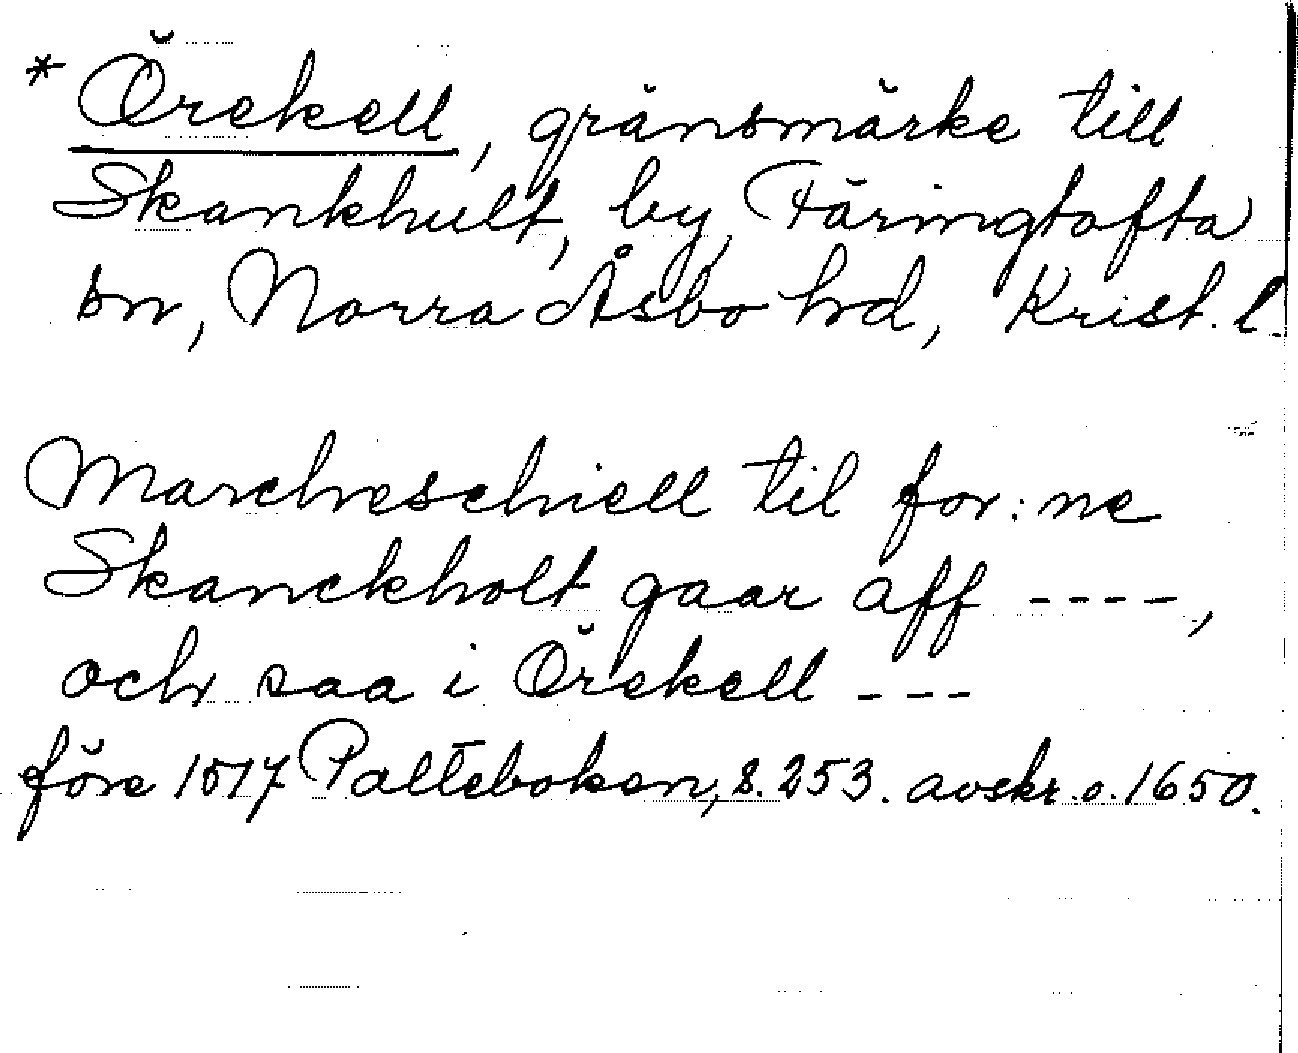 * Örekell, gränsmärke till
Skankhult, by, Färingtofta
sn, Norra Åsbo hd, Krist. l.
Marcheschiell til for: ne
Skanckholt gaar aff ----,
och saa i Örekell ---
före 1517 Palteboken, s. 253. avskr. o. 1650.